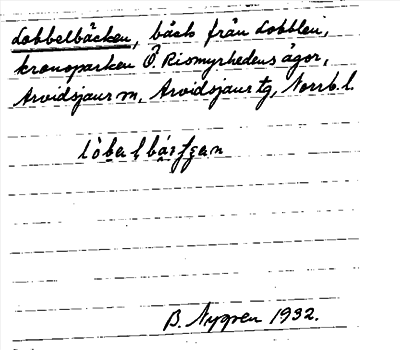 Lobbelbäcken, bäck från Lobblen,
kronoparken Ö Rismyrhedens ägor,
Arvidsjaur m, Arvidsjaur tg, Norrb. l.
B. Nygren 1932.